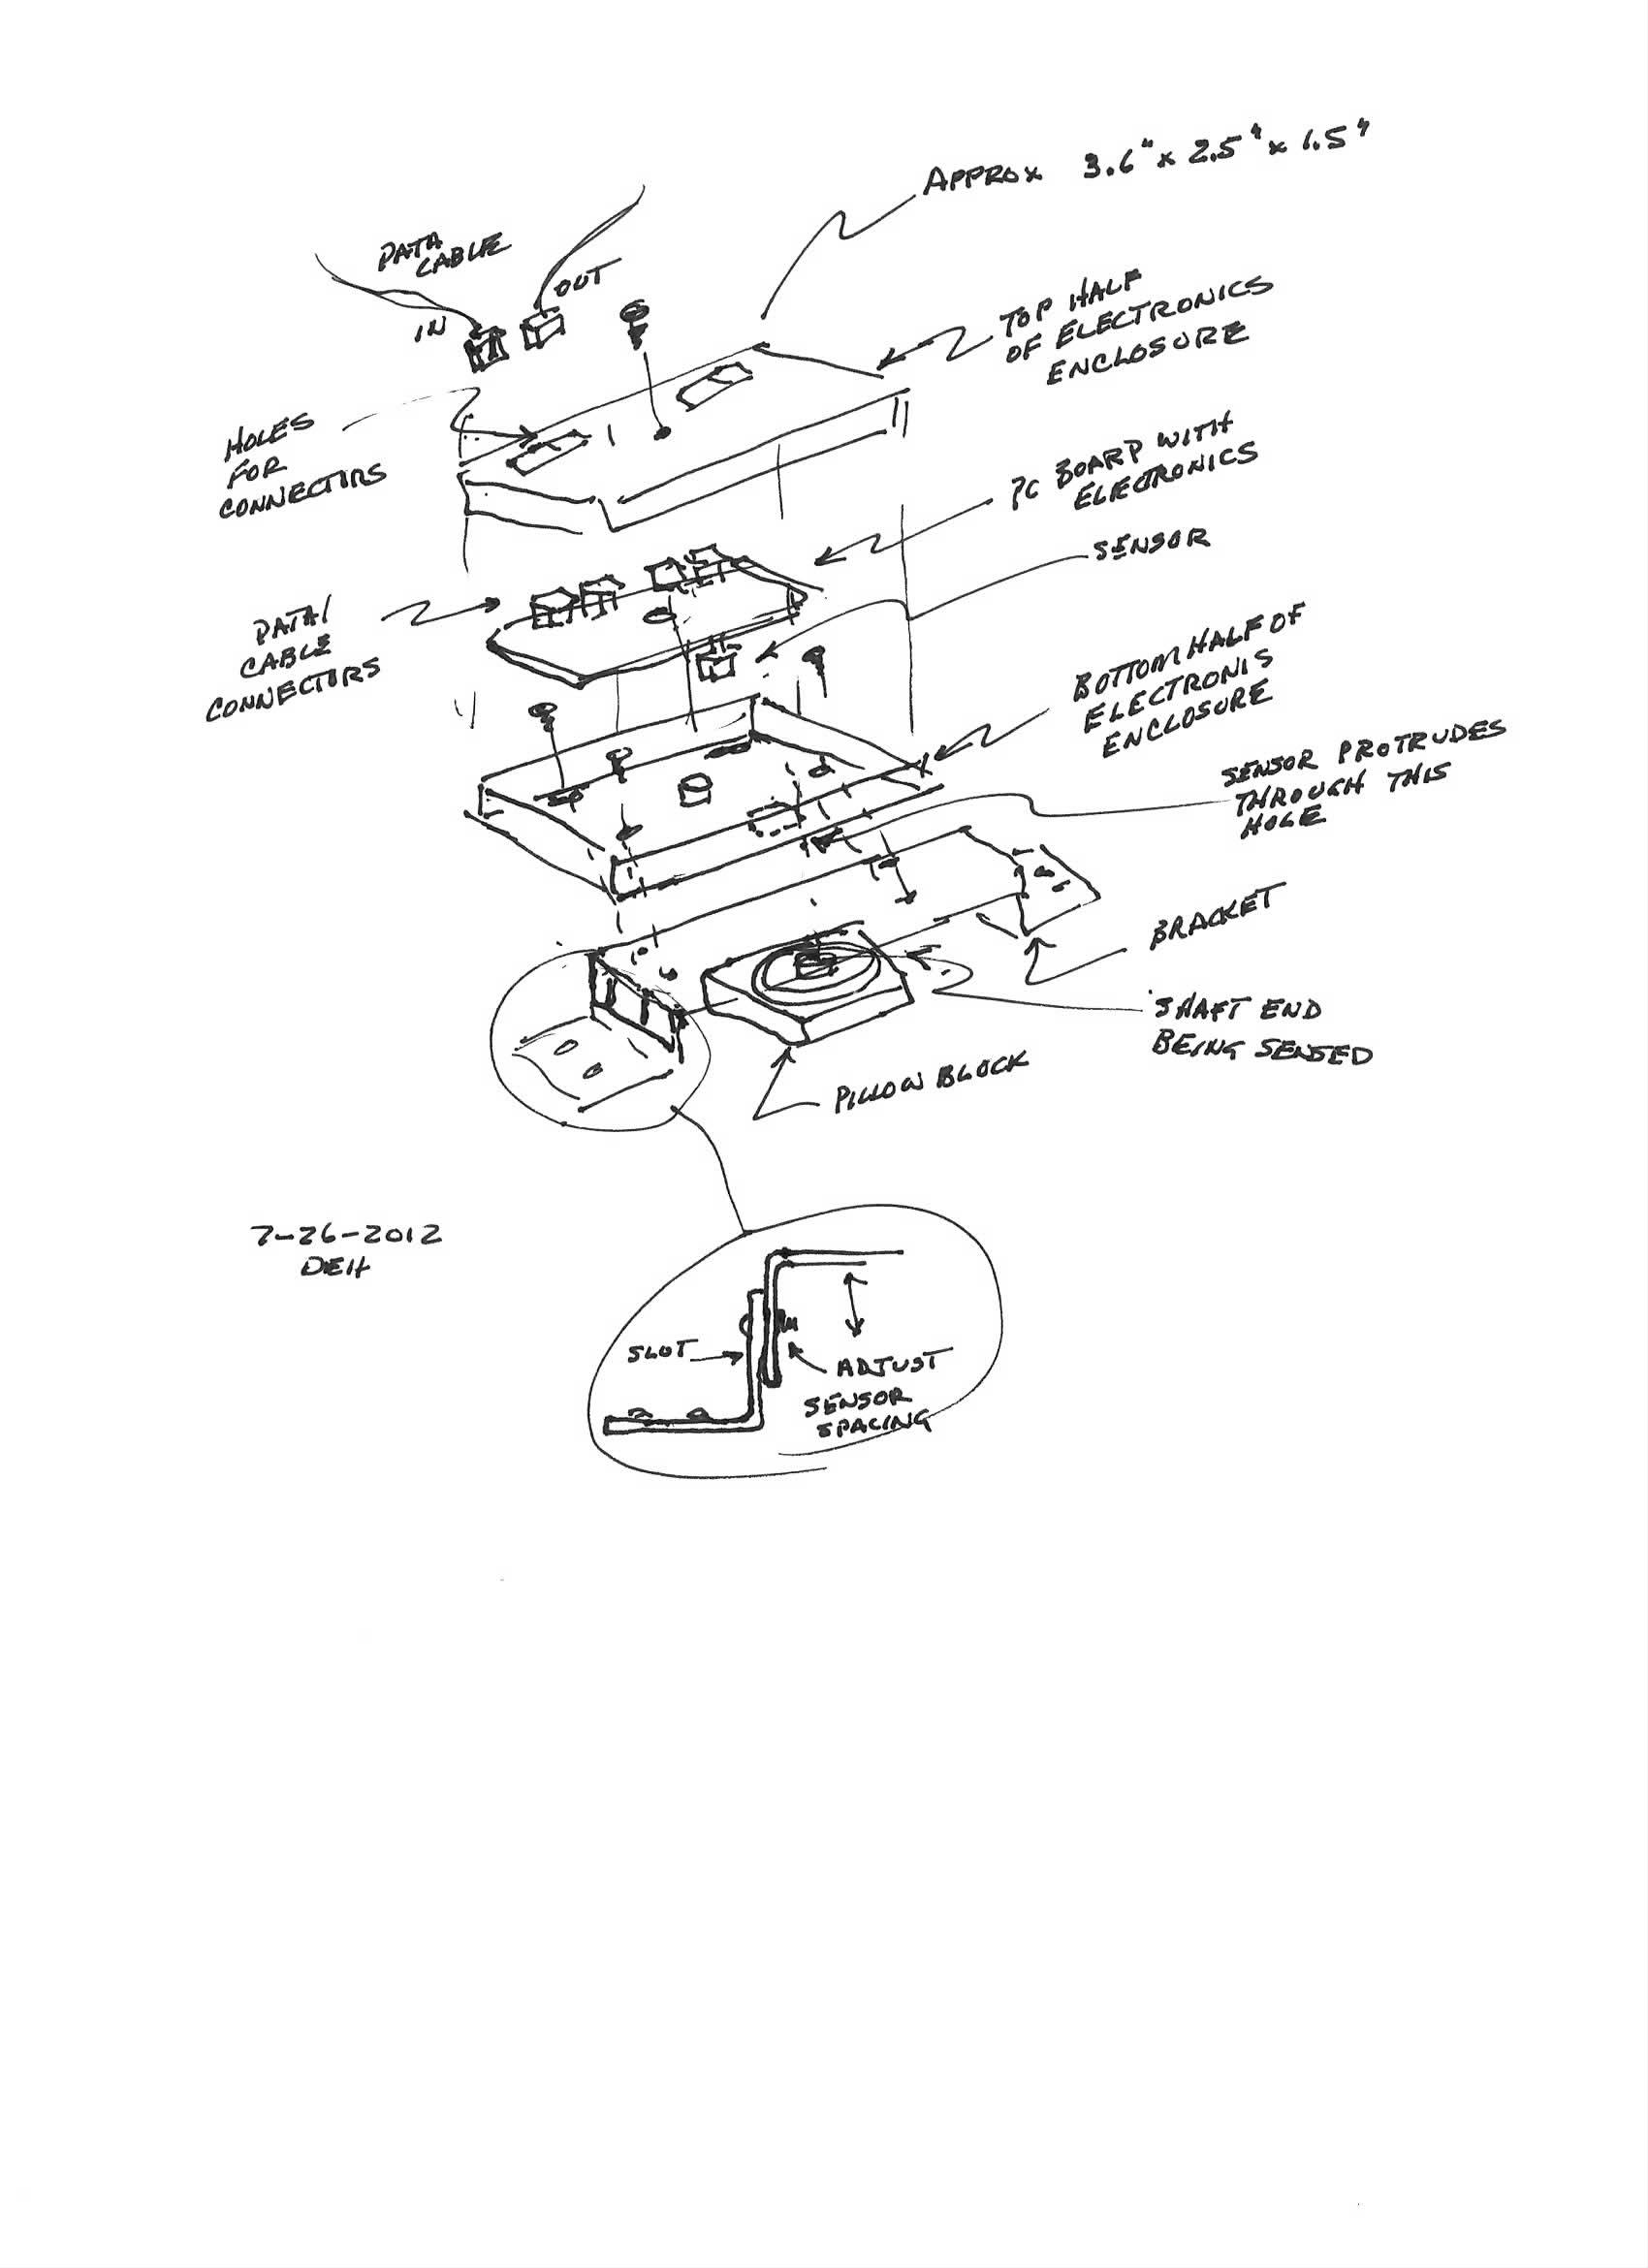 APPROX 3.6" x 2.5" x 1.5"
DATA
CABLE
OUT
IN
TOP HALF
OF ELECTRONICS
ENCLOSURE
HOLES
FOR
CONNECTORS
PC BOARD WITH
ELECTRONICS
SENSOR
DATA/
CABLE
CONNECTORS
BOTTOM HALF OF
ELECTRONIS
ENCLOSURE
SENSOR PROTRUDES
THROUGH THIS
HOLE
BRACKET
SHAFT END
BEING SENSED
PILLOW BLOCK
7-26-2012
DEH
SLOT
ADJUST
SENSOR
SPACING